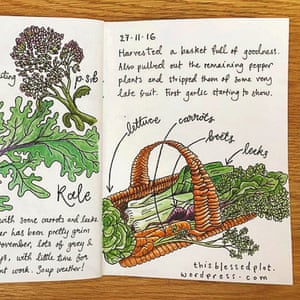 p.s.b
Kale
with some carrots and leeks.
has been pretty grim
November, lots of grey &
with little time for
work. Soup weather!
27·11·16
Harvested a basket full of goodness.
Also pulled out the remaining pepper
plants and stripped them of some very
late fruit. First garlic starting to show.
lettuce
carrots
beets
leeks
thisblessedplot.
wordpress.com